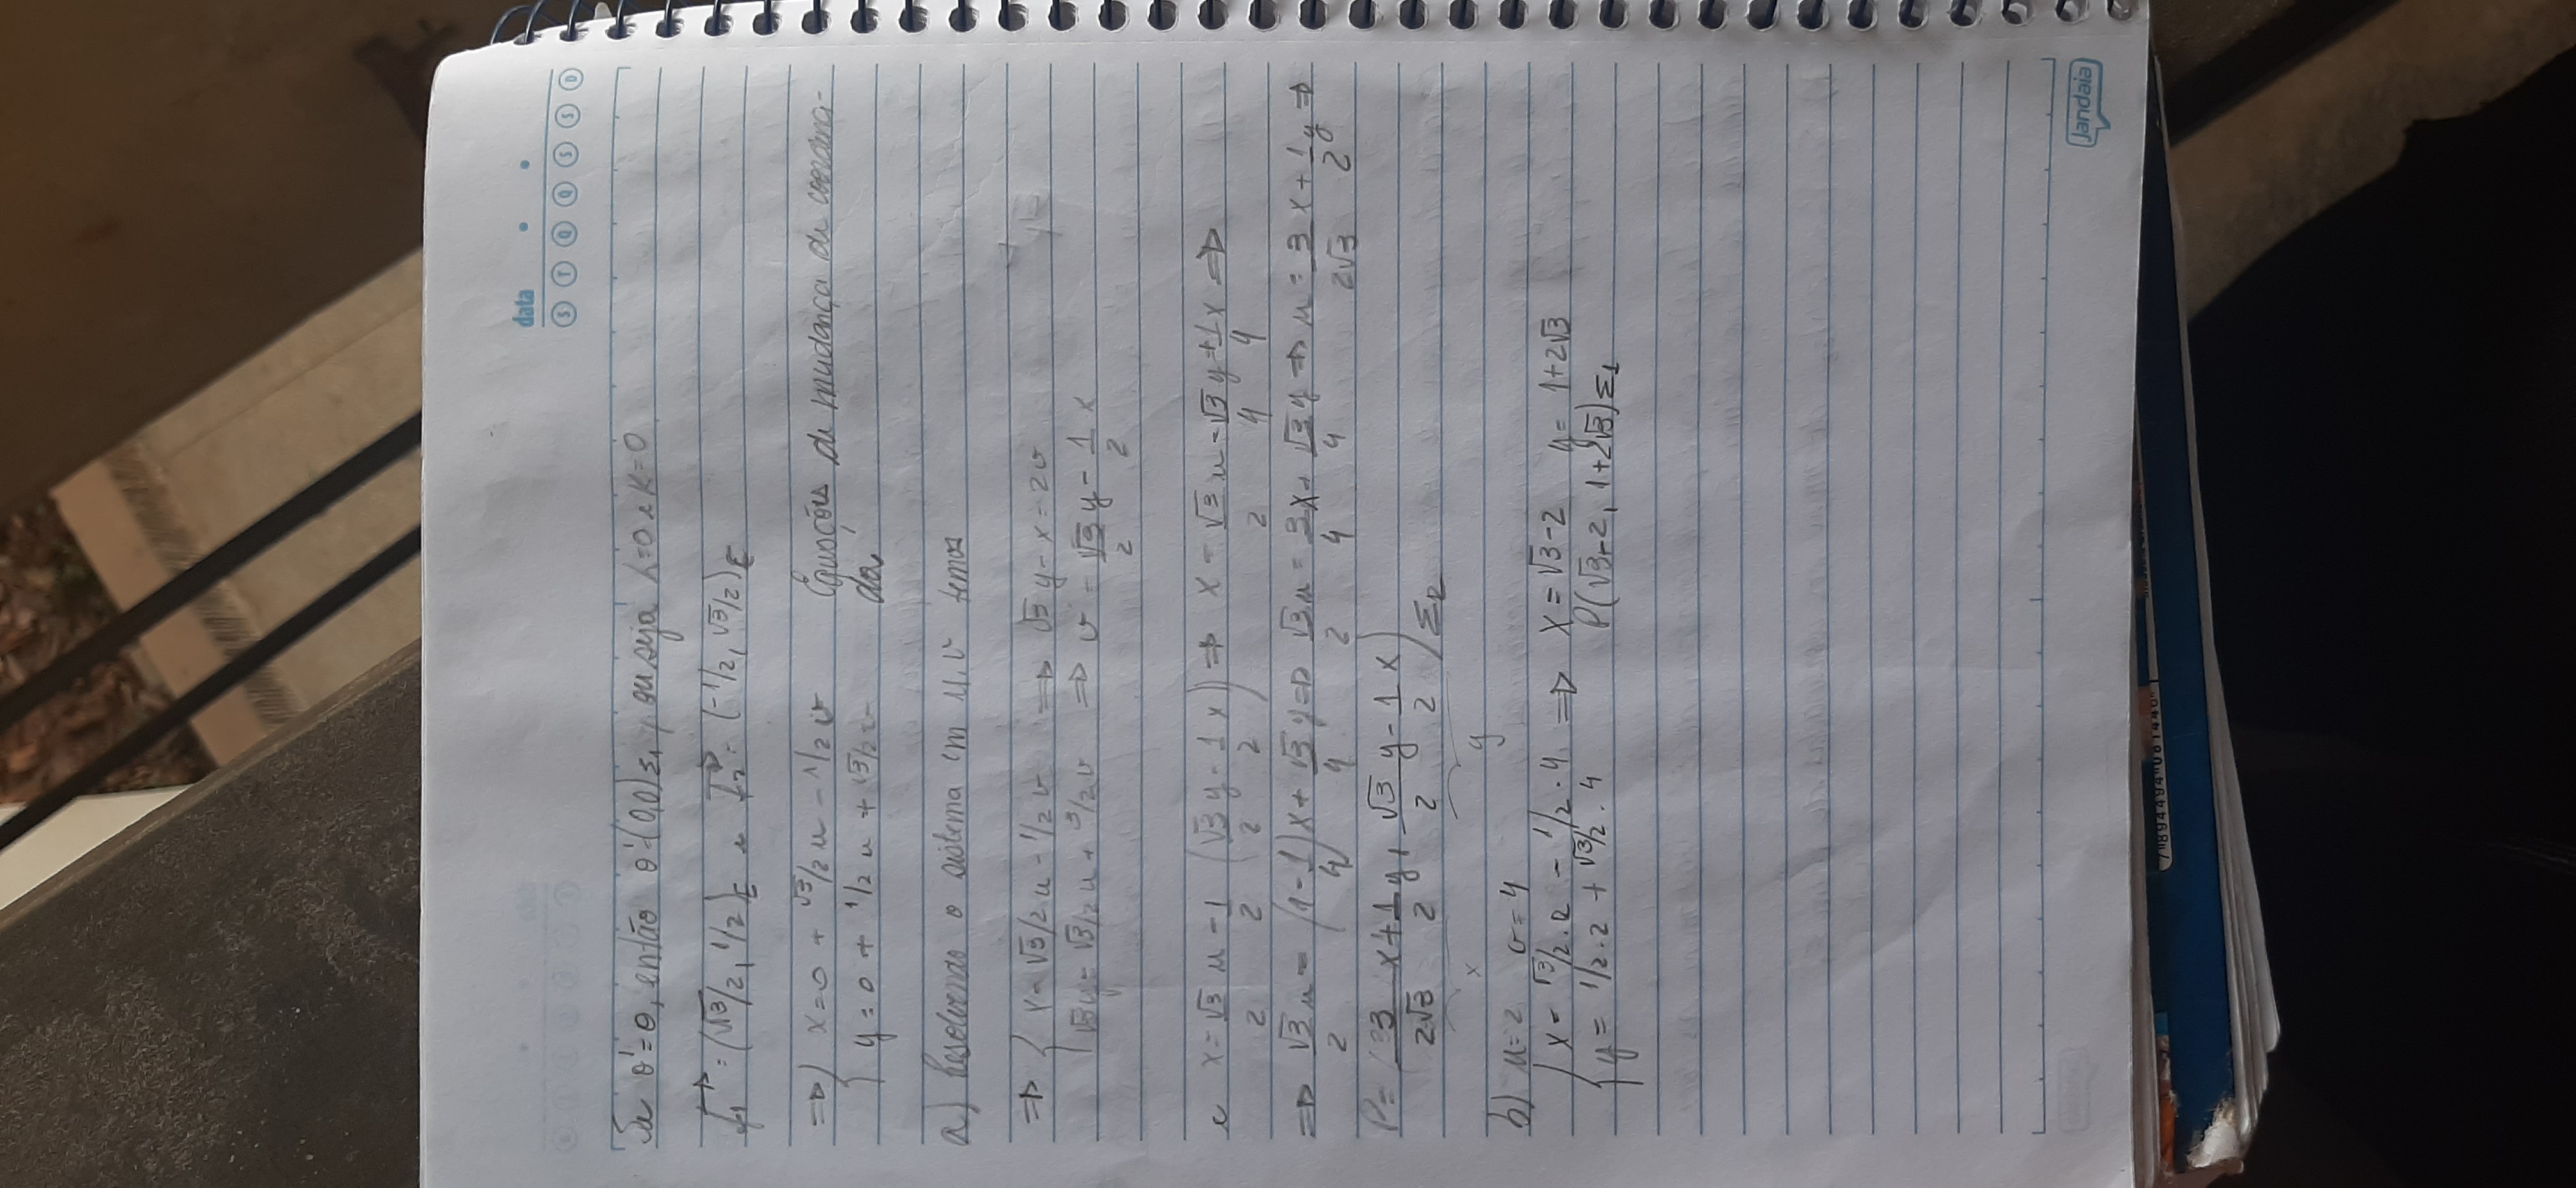 data
S T Q Q S S D
Se θ'=θ, então θ'=(0,0)Σ1, ou seja h=0 e k=0
f1 = (√3/2, 1/2)E e f2 = (-1/2, √3/2)E
⇒ { x=0 + √3/2 u - 1/2 v Equações de mudança de coordena-
y=0 + 1/2 u + √3/2 v da
a) Resolvendo o sistema em u, v temos
⇒ { x = √3/2 u - 1/2 v ⇒ √3 y - x = 2v
√3y = √3/2 u + 3/2 v ⇒ v = √3/2 y - 1/2 x
e x = √3/2 u - 1/2 (√3/2 y - 1/2 x) ⇒ x = √3/2 u - √3/4 y + 1/4 x ⇒
⇒ √3/2 u = (1 - 1/4)x + √3/4 y ⇒ √3/2 u = 3/4 x + √3/4 y ⇒ u = 3/2√3 x + 1/2 y ⇒
P = (3/2√3 x + 1/2 y, √3/2 y - 1/2 x)Σ2
x y
b) u=2 v=4
{ x = √3/2 . 2 - 1/2 . 4 ⇒ x = √3-2 y = 1+2√3
y = 1/2 . 2 + √3/2 . 4 P(√3-2, 1+2√3)Σ1
Jandaia